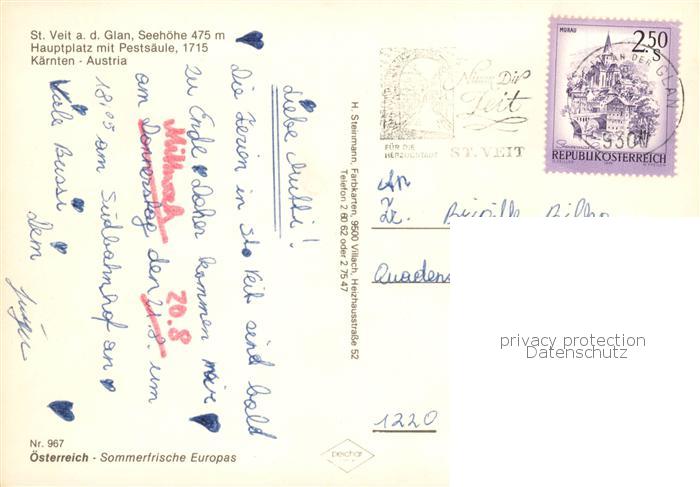 St. Veit a. d. Glan, Seehöhe 475 m
Hauptplatz mit Pestsäule, 1715
Kärnten - Austria
Liebe Mutti!
Die Ferien in St. Veit sind bald
zu Ende Daher kommen wir
am Donnerstag den 21.8. um
Mittwoch 20.8
18.05 am Südbahnhof an
Viele Bussi
Dein
Nr. 967
Österreich - Sommerfrische Europas
H. Steinmann, Farbkarten, 9500 Villach, Heizhausstraße 52
Telefon 2 60 62 oder 2 75 47
peichar
Nimm Dir
Zeit
FÜR DIE
HERZOGSTADT ST. VEIT
MURAU
2.50
S
REPUBLIK ÖSTERREICH
AN DER GLAN
9300
An
Fr.
1220
privacy protection
Datenschutz